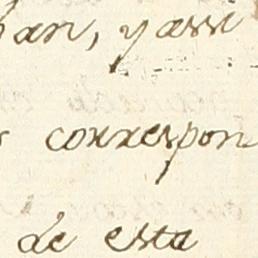 han, y assi
s correspon
de esta